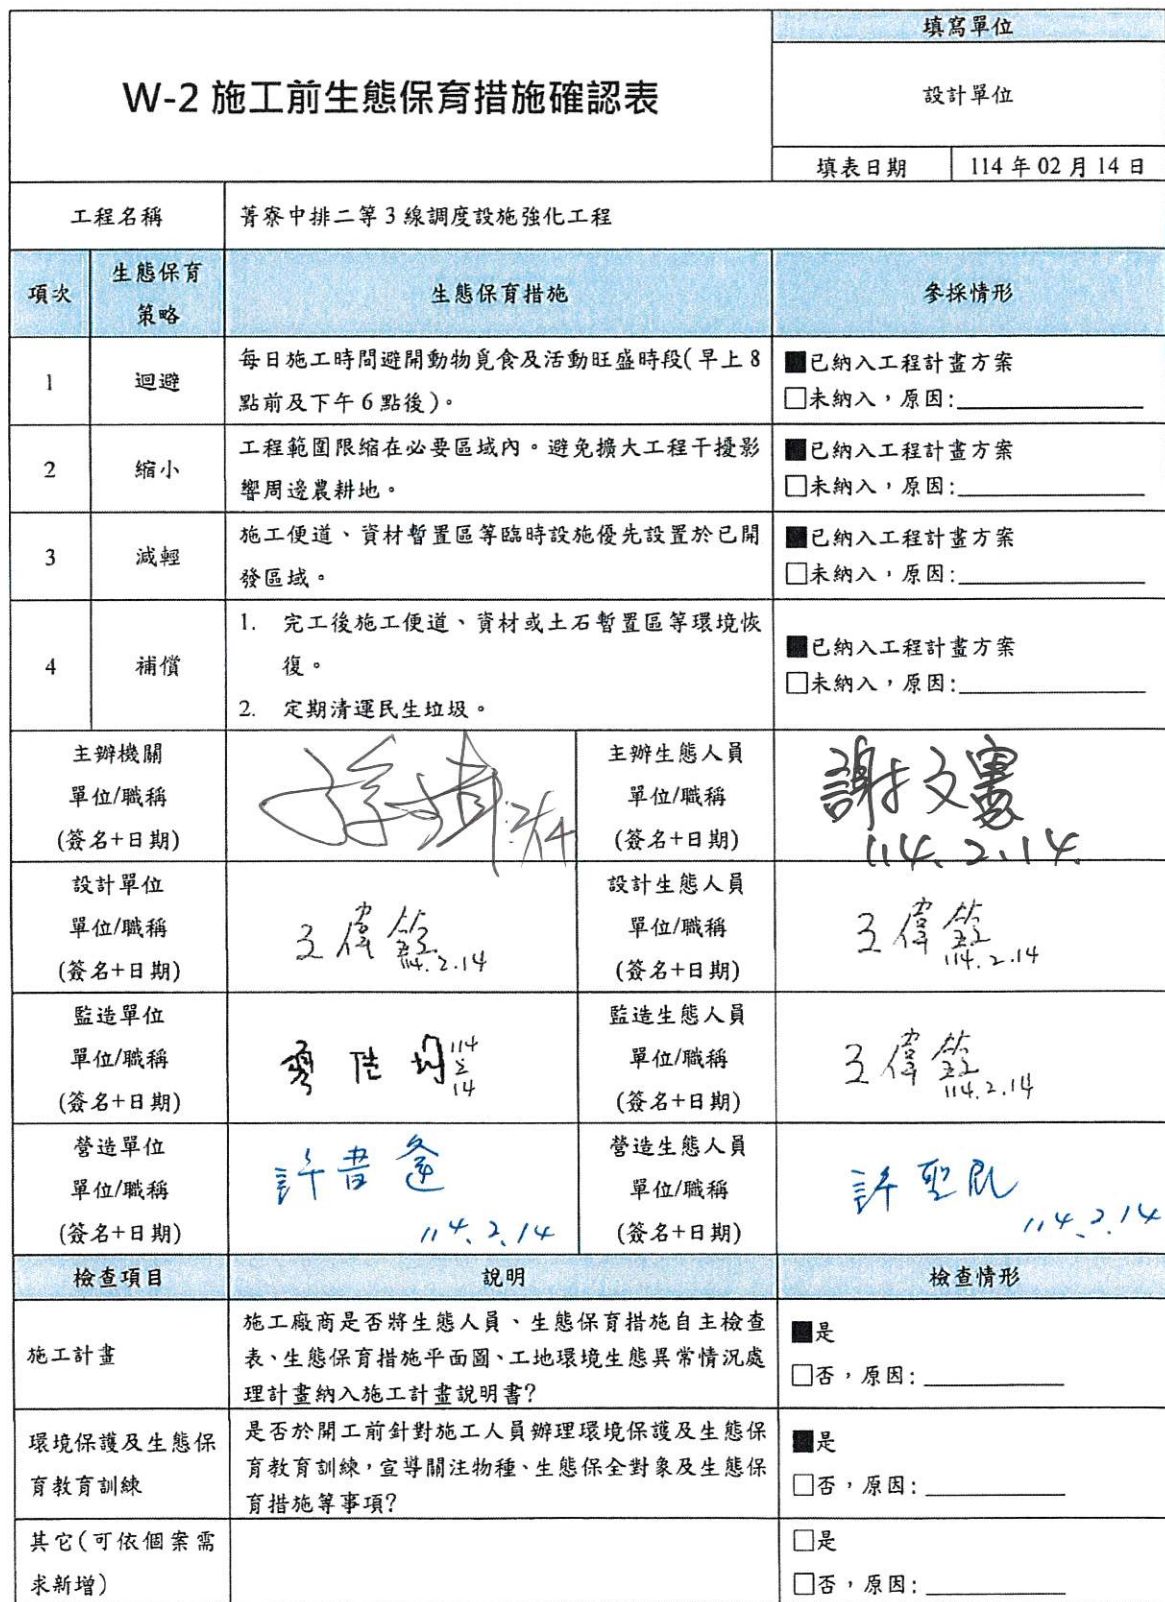 W-2 施工前生態保育措施確認表
填寫單位
設計單位
填表日期 114 年 02 月 14 日
工程名稱 菁寮中排二等 3 線調度設施強化工程
項次 生態保育策略 生態保育措施 參採情形
1 迴避
每日施工時間避開動物覓食及活動旺盛時段(早上 8
點前及下午 6 點後)。
■已納入工程計畫方案
□未納入，原因:
2 縮小
工程範圍限縮在必要區域內。避免擴大工程干擾影
響周邊農耕地。
■已納入工程計畫方案
□未納入，原因:
3 減輕
施工便道、資材暫置區等臨時設施優先設置於已開
發區域。
■已納入工程計畫方案
□未納入，原因:
4 補償
1. 完工後施工便道、資材或土石暫置區等環境恢
復。
2. 定期清運民生垃圾。
■已納入工程計畫方案
□未納入，原因:
主辦機關
單位/職稱
(簽名+日期)
2/14
主辦生態人員
單位/職稱
(簽名+日期)
謝文
114.2.14.
設計單位
單位/職稱
(簽名+日期)
王偉
114.2.14
設計生態人員
單位/職稱
(簽名+日期)
王偉
114.2.14
監造單位
單位/職稱
(簽名+日期)
114
2
14
監造生態人員
單位/職稱
(簽名+日期)
王偉
114.2.14
營造單位
單位/職稱
(簽名+日期)
許書
114.2.14
營造生態人員
單位/職稱
(簽名+日期)
許聖
114.2.14
檢查項目 說明 檢查情形
施工計畫
施工廠商是否將生態人員、生態保育措施自主檢查
表、生態保育措施平面圖、工地環境生態異常情況處
理計畫納入施工計畫說明書?
■是
□否，原因:
環境保護及生態保
育教育訓練
是否於開工前針對施工人員辦理環境保護及生態保
育教育訓練，宣導關注物種、生態保全對象及生態保
育措施等事項?
■是
□否，原因:
其它(可依個案需
求新增)
□是
□否，原因: